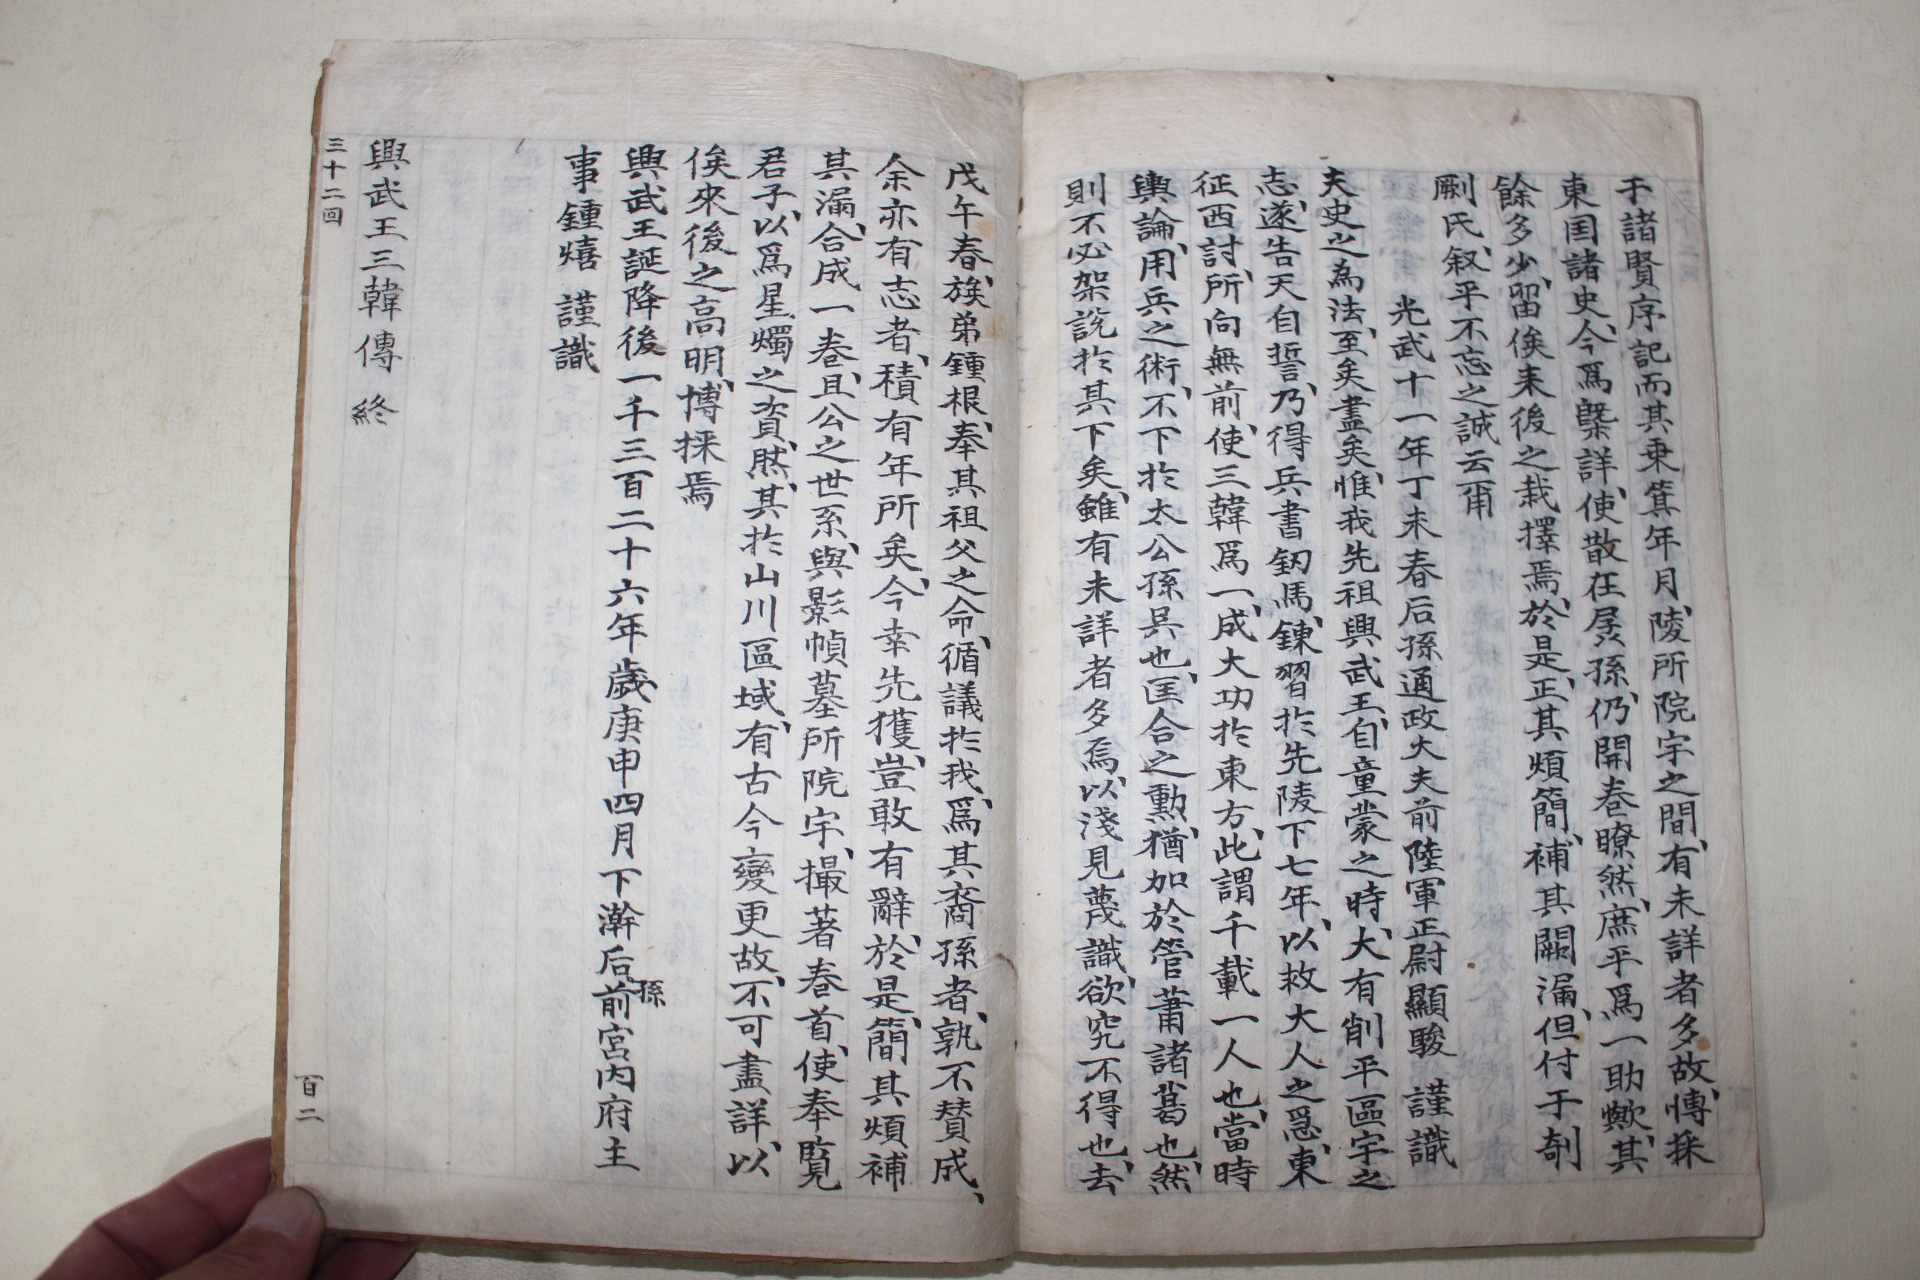 于諸賢序記而其乘箕年月陵所院宇之間有未詳者多故博採
東国諸史今爲槩詳使散在孱孫仍開卷瞭然庶乎爲一助歟其
餘多少留俟来後之裁擇焉於是正其煩簡補其闕漏但付于剞
劂氏叙平不忘之誠云甫
光武十一年丁未春后孫通政大夫前陸軍正尉顯駿 謹識
夫史之為法至矣盡矣惟我先祖興武王自童蒙之時大有削平區宇之
志遂告天自誓乃得兵書釼馬鍊習於先陵下七年以救大人之急東
征西討所向無前使三韓爲一成大功於東方此謂千載一人也當時
輿論用兵之術不下於太公孫吳也匡合之勳猶加於管蕭諸葛也然
則不必架説於其下矣雖有未詳者多焉以淺見蔑識欲究不得也去
戊午春族弟鍾根奉其祖父之命循議於我爲其裔孫者孰不賛成
余亦有志者積有年所矣今幸先獲豈敢有辭於是簡其煩補
其漏合成一卷且公之世系與影幀墓所院宇撮著卷首使奉覧
君子以爲星燭之資然其於山川區域有古今變更故不可盡詳以
俟來後之高明博採焉
興武王誕降後一千三百二十六年歲庚申四月下澣后孫前宮内府主
事鍾熺 謹識
興武王三韓傳 終
三十二回
百二